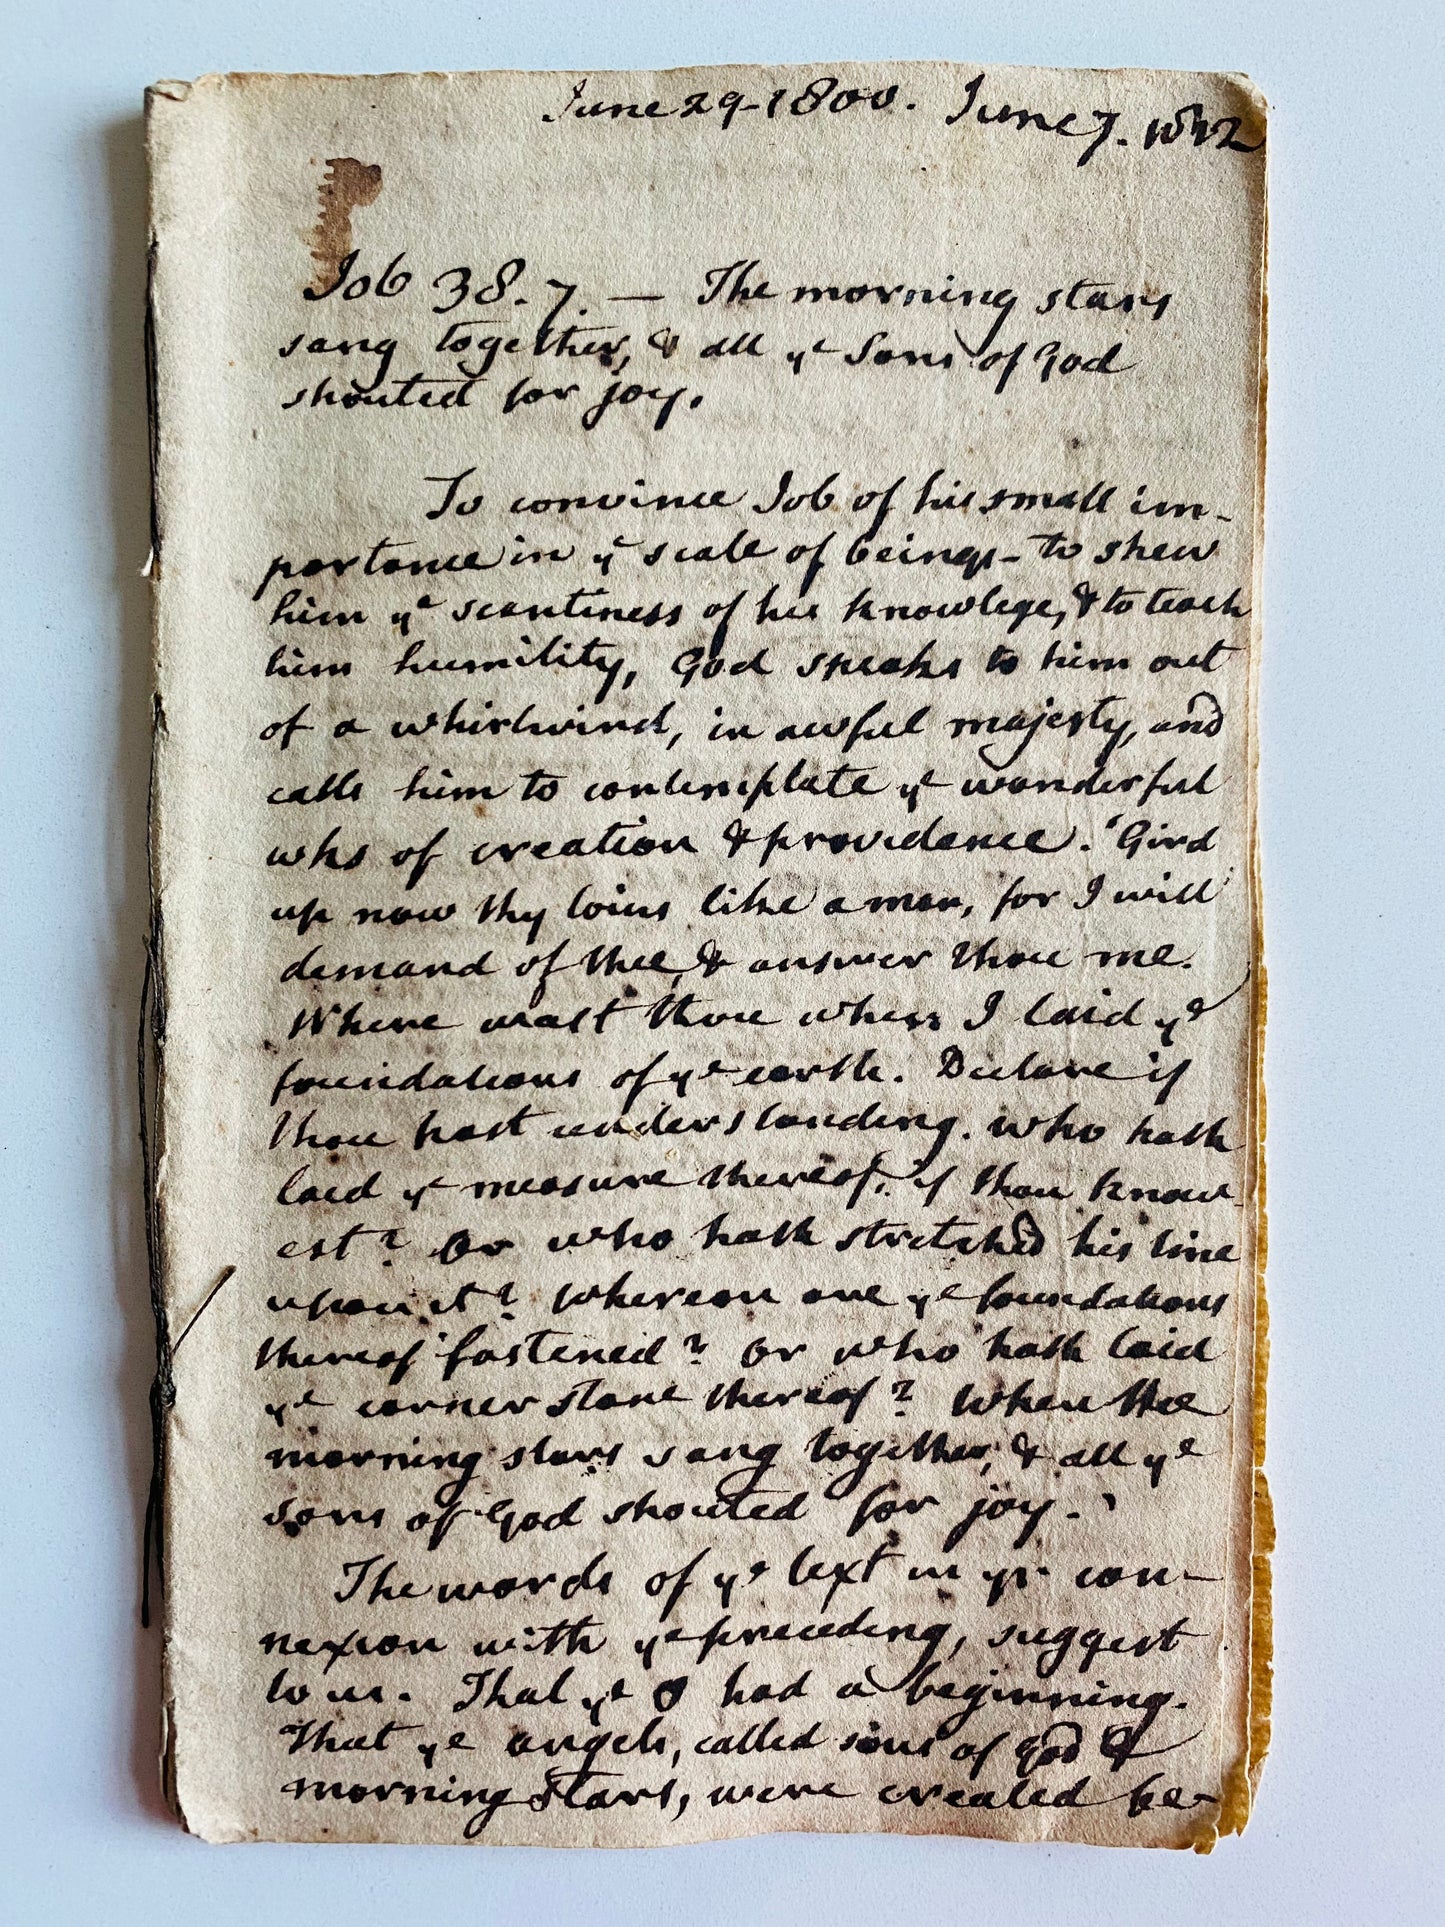 June 29-1800. June 7.
Job 38. 7. — The morning stars
sang together, & all ye Sons of God
shouted for joy.
To convince Job of his small im-
portance in ye scale of beings - to shew
him ye scantiness of his knowlege, & to teach
him humility, God speaks to him out
of a whirlwind, in awful majesty, and
calls him to contemplate ye wonderful
wks of creation & providence. 'Gird
up now thy loins like a man, for I will
demand of thee, & answer thou me.
Where wast thou when I laid ye
foundations of ye earth. Declare if
thou hast understanding. Who hath
laid ye measure thereof, if thou know-
est? Or who hath stretched his line
upon it? Whereon are ye foundations
thereof fastened? Or who hath laid
ye corner stone thereof? When the
morning stars sang together, & all ye
sons of God shouted for joy.'
The words of ye text in yr con-
nexion with ye preceding, suggest
to us. That ye had a beginning.
That ye angels, called sons of God &
morning stars, were created be-